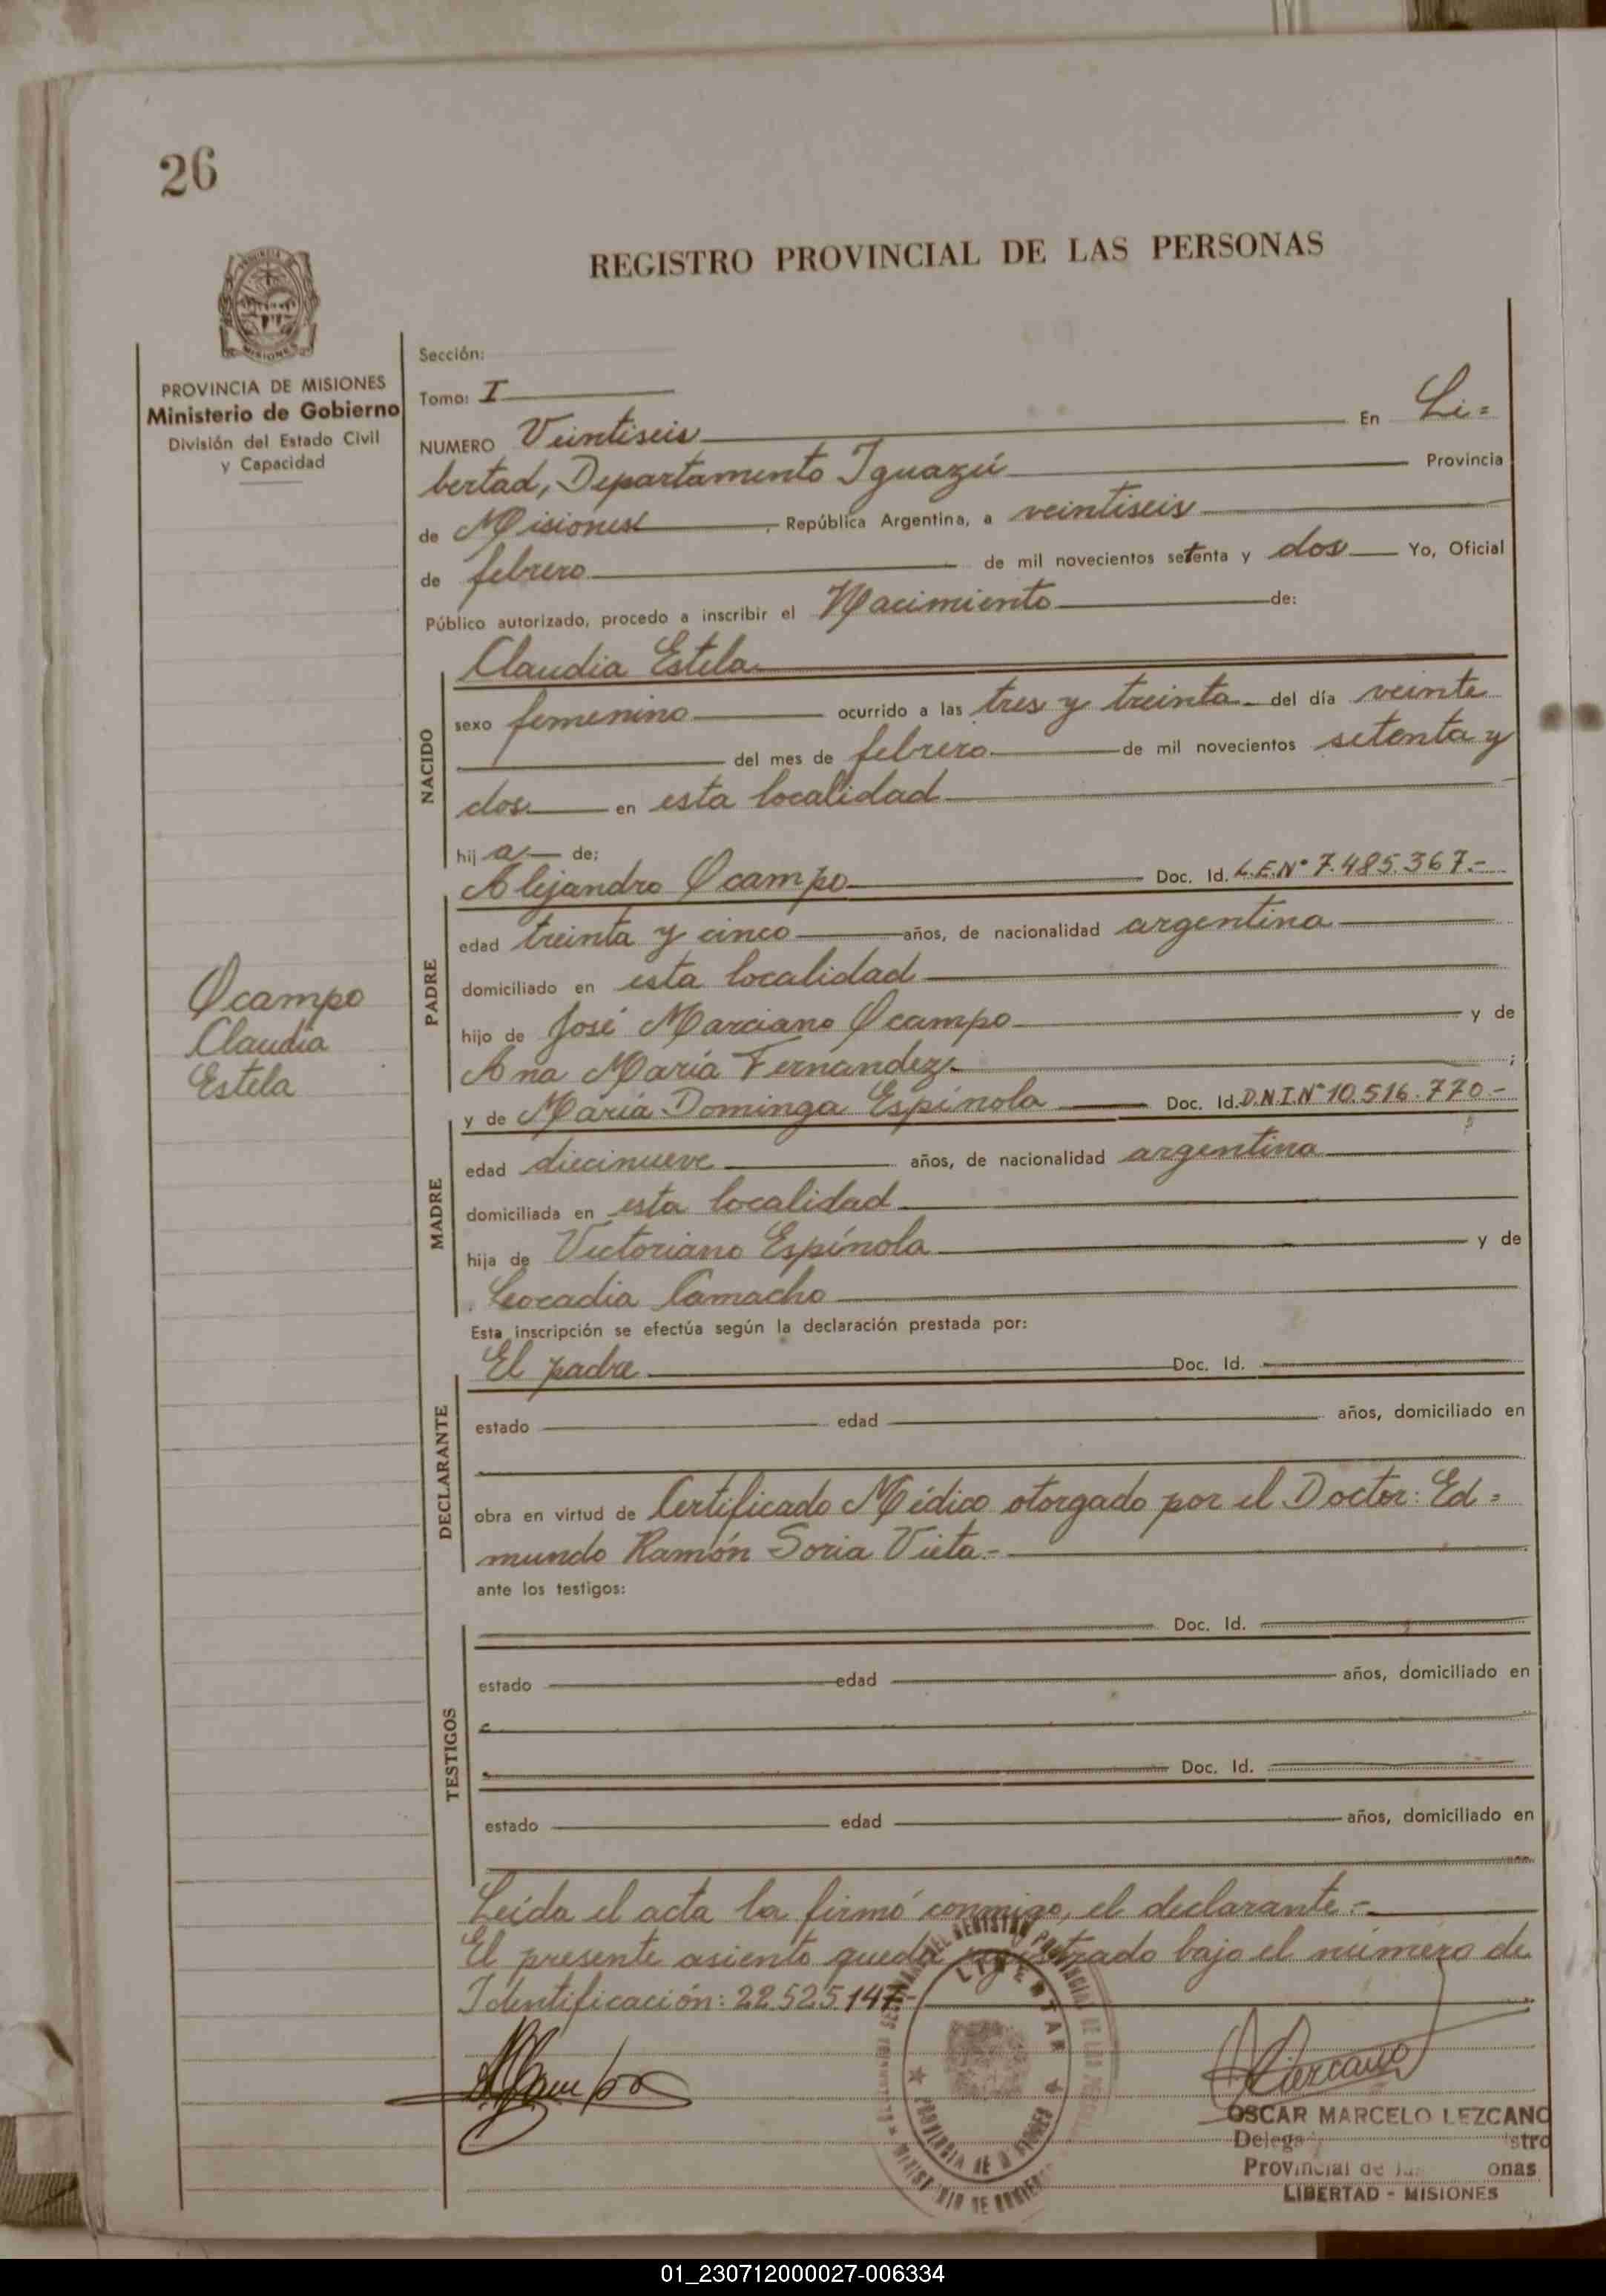 26
REGISTRO PROVINCIAL DE LAS PERSONAS
PROVINCIA DE MISIONES
Ministerio de Gobierno
División del Estado Civil
y Capacidad
Ocampo
Claudia
Estela
Sección:
Tomo: I
NUMERO Veintiseis En Li=
bertad, Departamento Iguazú Provincia
de Misiones , República Argentina, a veintiseis
de febrero de mil novecientos setenta y dos Yo, Oficial
Público autorizado, procedo a inscribir el Nacimiento de:
NACIDO
Claudia Estela
sexo femenino ocurrido a las tres y treinta del día veinte
del mes de febrero de mil novecientos setenta y
dos en esta localidad
hij a de:
PADRE
Alejandro Ocampo Doc. Id. L.E.Nº 7.485.367.-
edad treinta y cinco años, de nacionalidad argentina
domiciliado en esta localidad
hijo de José Marciano Ocampo y de
Ana María Fernandez ;
MADRE
y de María Dominga Espínola Doc. Id. D.N.I.Nº 10.516.770.-
edad diecinueve años, de nacionalidad argentina
domiciliada en esta localidad
hija de Victoriano Espínola y de
Leocadia Camacho
Esta inscripción se efectúa según la declaración prestada por:
DECLARANTE
El padre Doc. Id.
estado edad años, domiciliado en
obra en virtud de Certificado Médico otorgado por el Doctor: Ed=
mundo Ramón Soria Vieta.-
ante los testigos:
TESTIGOS
Doc. Id.
estado edad años, domiciliado en
Doc. Id.
estado edad años, domiciliado en
Leída el acta la firmó conmigo, el declarante.-
El presente asiento queda registrado bajo el número de
Identificación: 22.525.147-
LIBERTAD
PROVINCIA DE MISIONES
OSCAR MARCELO LEZCANO
Provincial de las
LIBERTAD - MISIONES
01_230712000027-006334